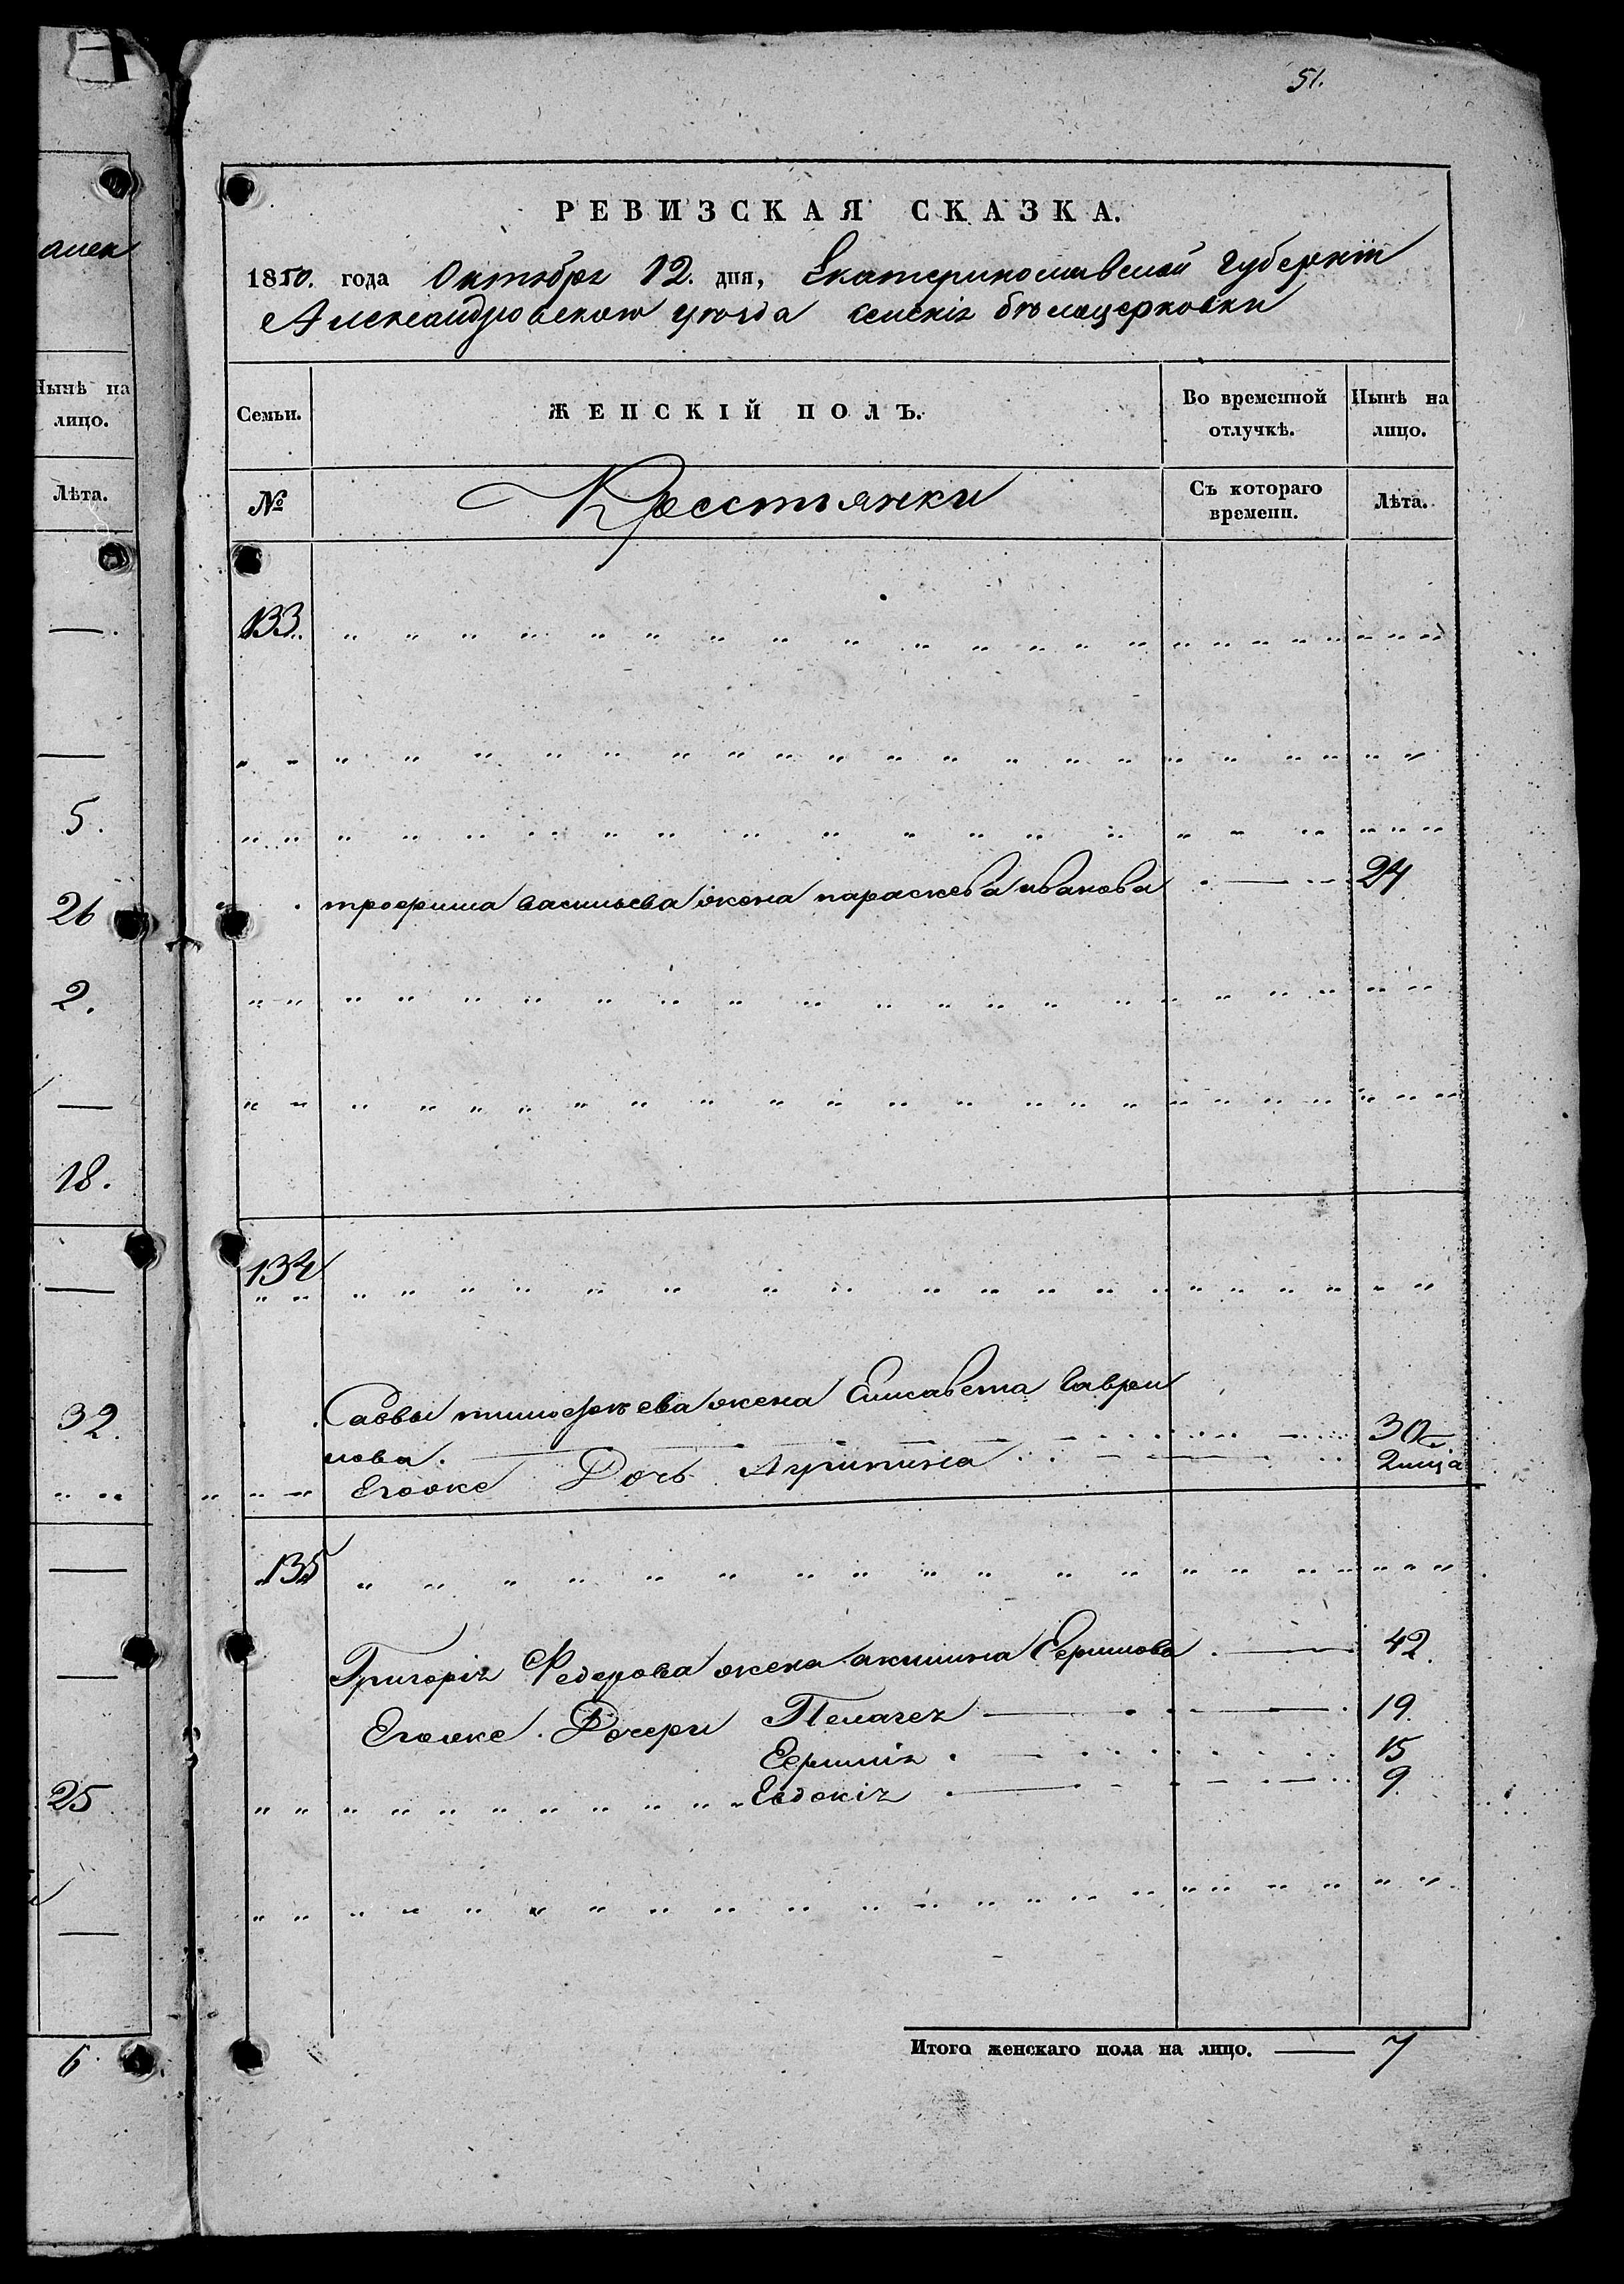 амен
Нынѣ на
лицо.
Лѣта.
5.
26
2.
18.
32.
25
6.
51.
РЕВИЗСКАЯ СКАЗКА.
1850. года Октября 12. дня, Екатеринославской Губерніи
Александровского уѣзда селенія бѣлоцерковки
Семьи. ЖЕНСКІЙ ПОЛЪ. Во временной отлучкѣ. Нынѣ на лицо.
№ Крестьянки Съ котораго времени. Лѣта.
133.
трофима васильева жена параскева иванова 24
134
Саввы тимофѣева жена Елисавета Гаври
лова. 30
Егоже Дочь Агрипина 2 мца
135
Григорія Федорова жена акилина Ефимова 42.
Егоже Дочери Пелагея 19.
Ефимія 15
Евдокія 9.
Итого женскаго пола на лицо. 7